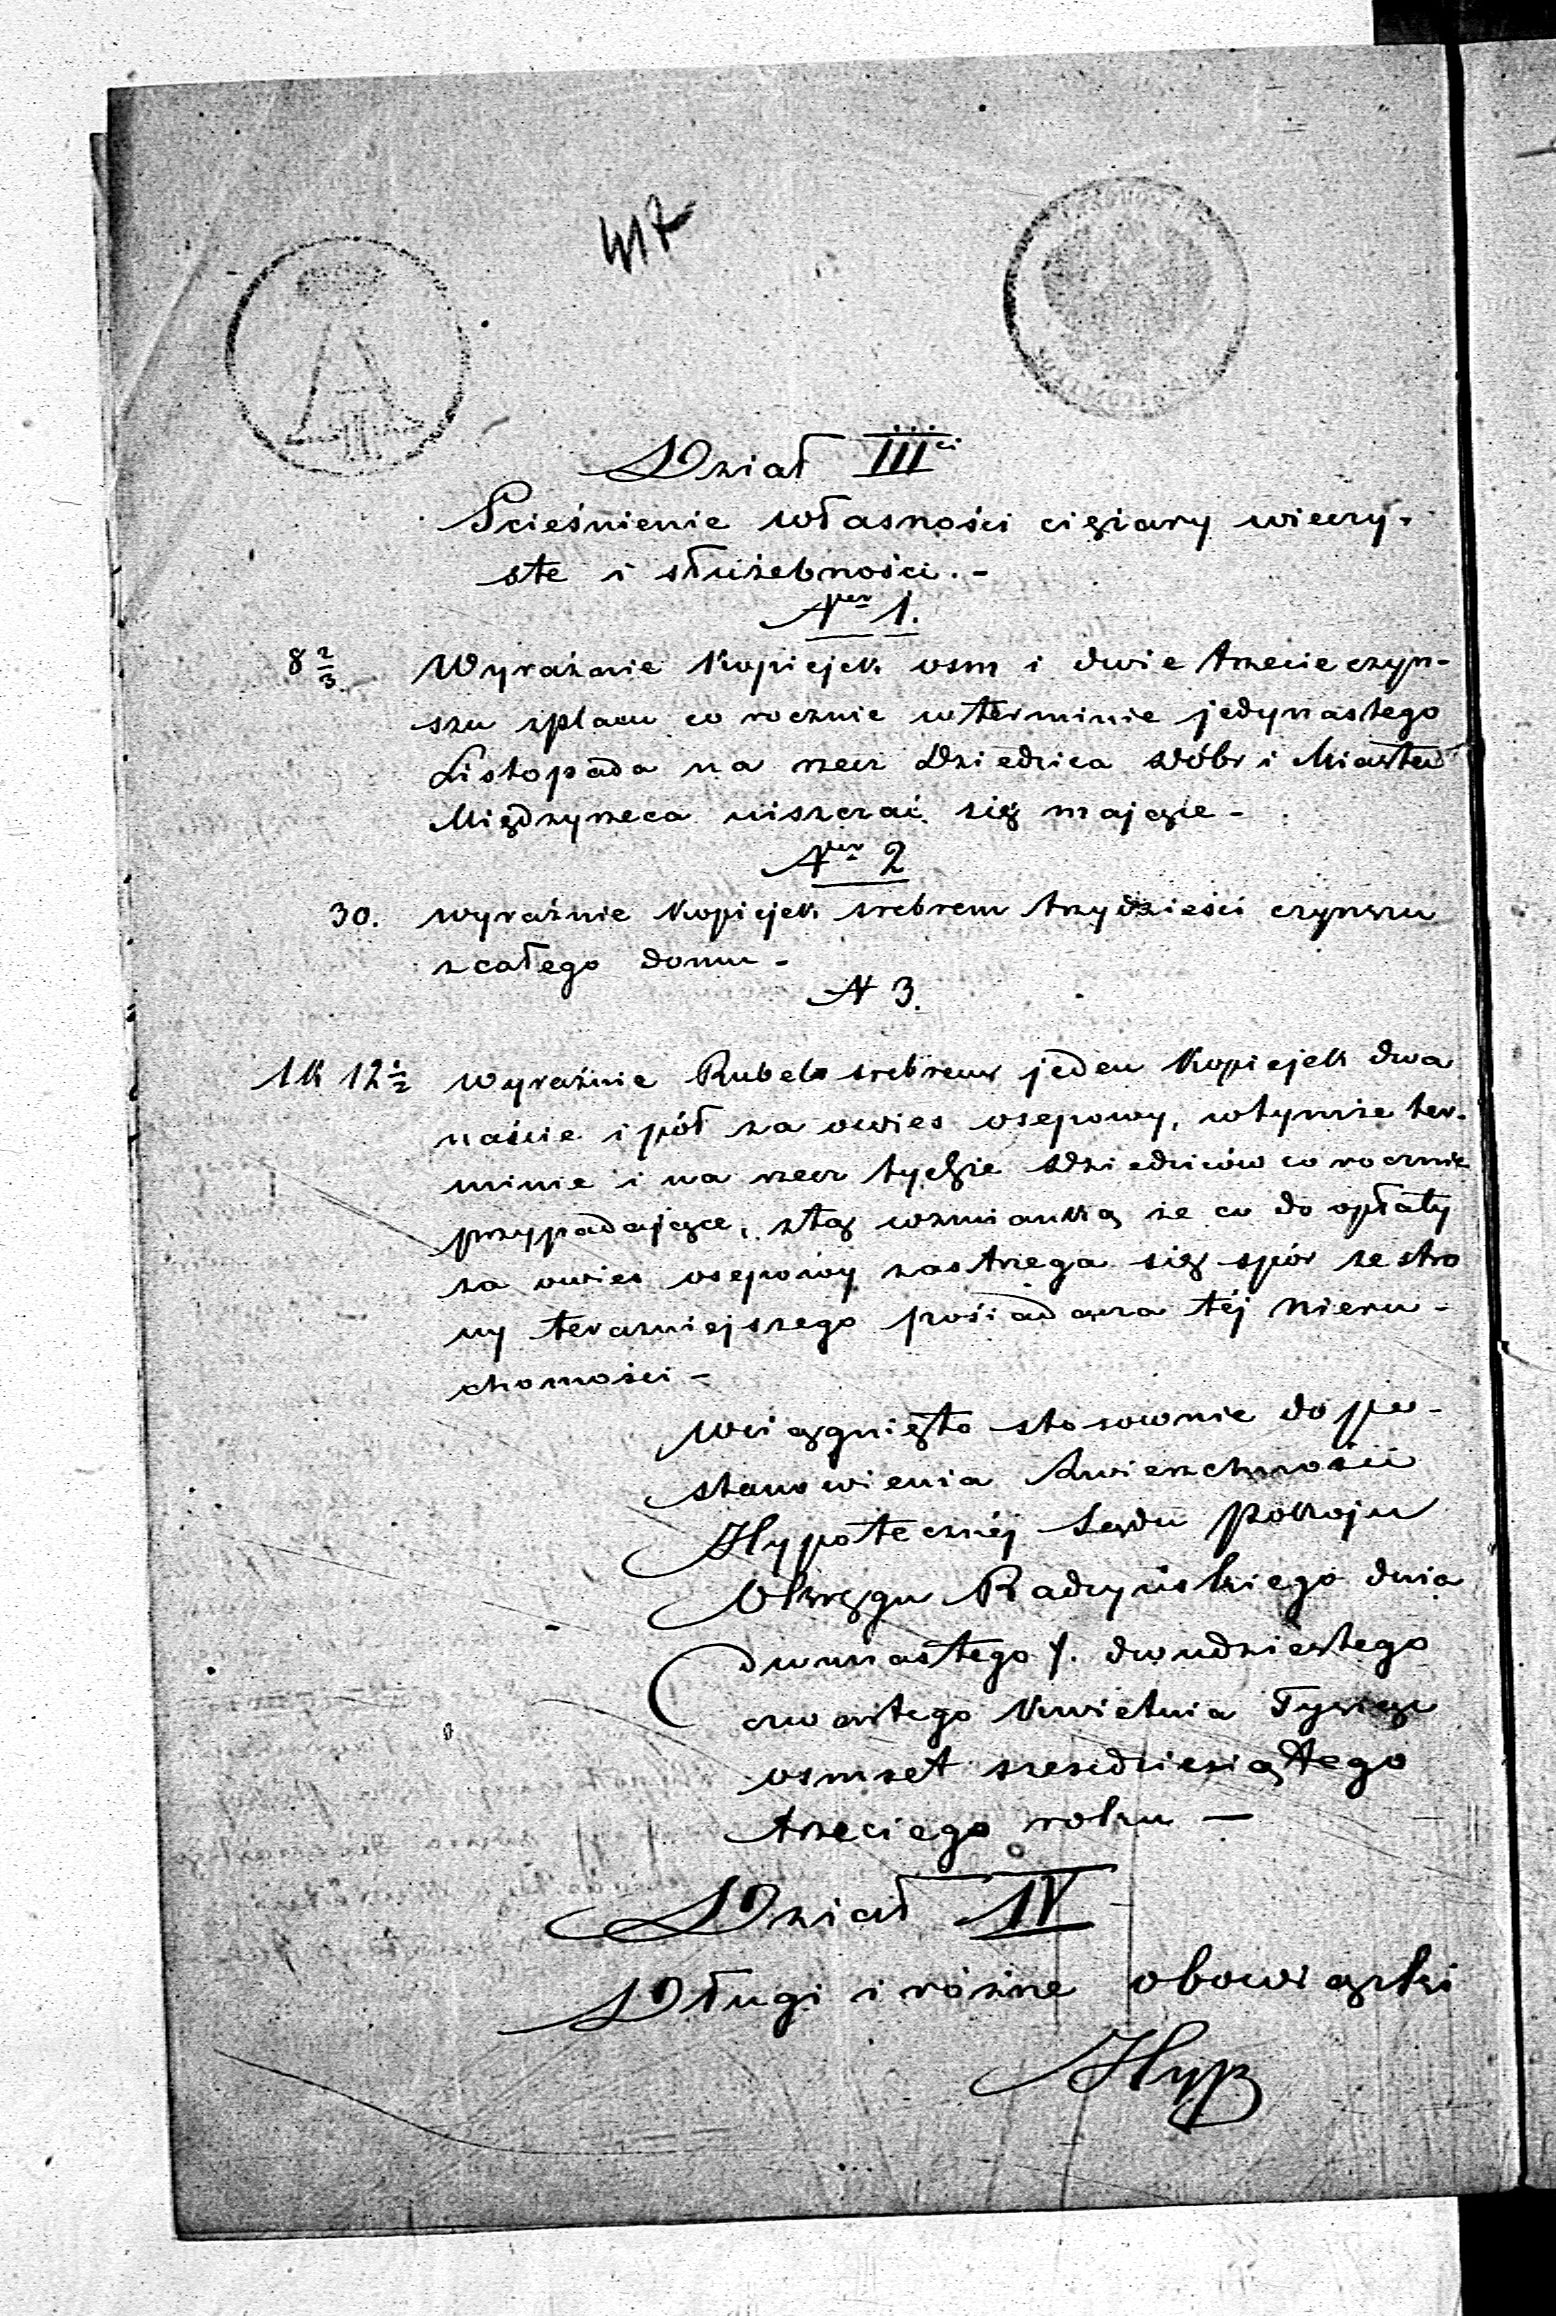 417
Dział III ci
Scieśnienie własności ciężary wieczy-
ste i służebności. -
Ner 1.
8 2/3 Wyraźnie Kopiejek osm i dwie trzecie czyn-
szu z placu co rocznie w terminie jedynastego
Listopada na rzecz Dziedzica Dóbr i Miasta
Międzyrzeca uiszczać się mające -
Ner 2
30. wyraźnie Kopiejek srebrem trzydzieści czynszu
z całego domu -
N 3.
1 k 12 1/2 wyraźnie Rubel srebrem jeden Kopiejek dwa
naście i pół za owies osepowy, w tymże ter-
minie i na rzecz tychże Dziedziców co rocznie
przypadające, z tą wzmianką że co do opłaty
za owies osepowy zastrzega się spór ze stro
ny teraźniejszego posiadacza téj nieru-
chomości -
Wciągnięto stosownie do po-
stanowienia Zwierzchności
Hypotecznéj Sądu Pokoju
Okręgu Radzyńskiego dnia
dwunastego /. dwudziestego
czwartego Kwietnia Tysiąc
osmset szesdziesiątego
trzeciego roku -
Dział IV
Długi i różne obowiązki
Hyp